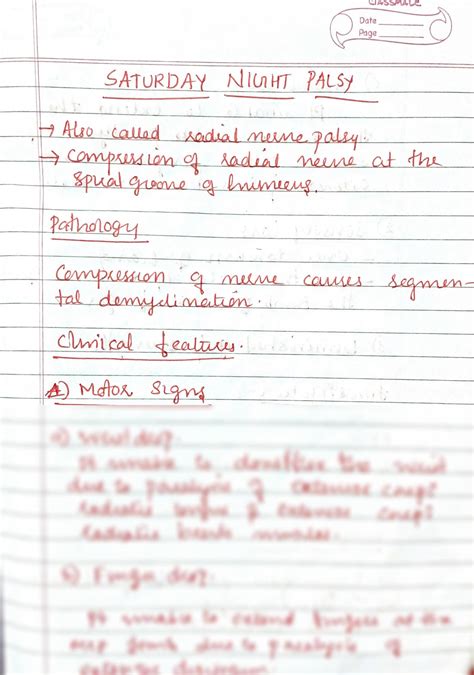 CLASSMATE
Date
Page
SATURDAY NIGHT PALSY
→ Also called radial nerve palsy.
→ Compression of radial nerve at the
spiral groove of humerus.
Pathology
Compression of nerve causes segmen-
tal demyelination.
Clinical features.
A) Motor Signs
a) Wrist drop
Pt unable to dorsiflex the wrist
due to paralysis of extensor carpi
radialis longus & extensor carpi
radialis brevis muscles.
b) Finger drop
Pt unable to extend fingers at the
due to paralysis of
extensor digitorum